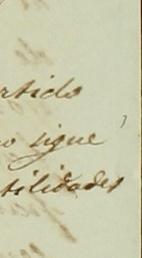 rtido
o sigue
tilidades